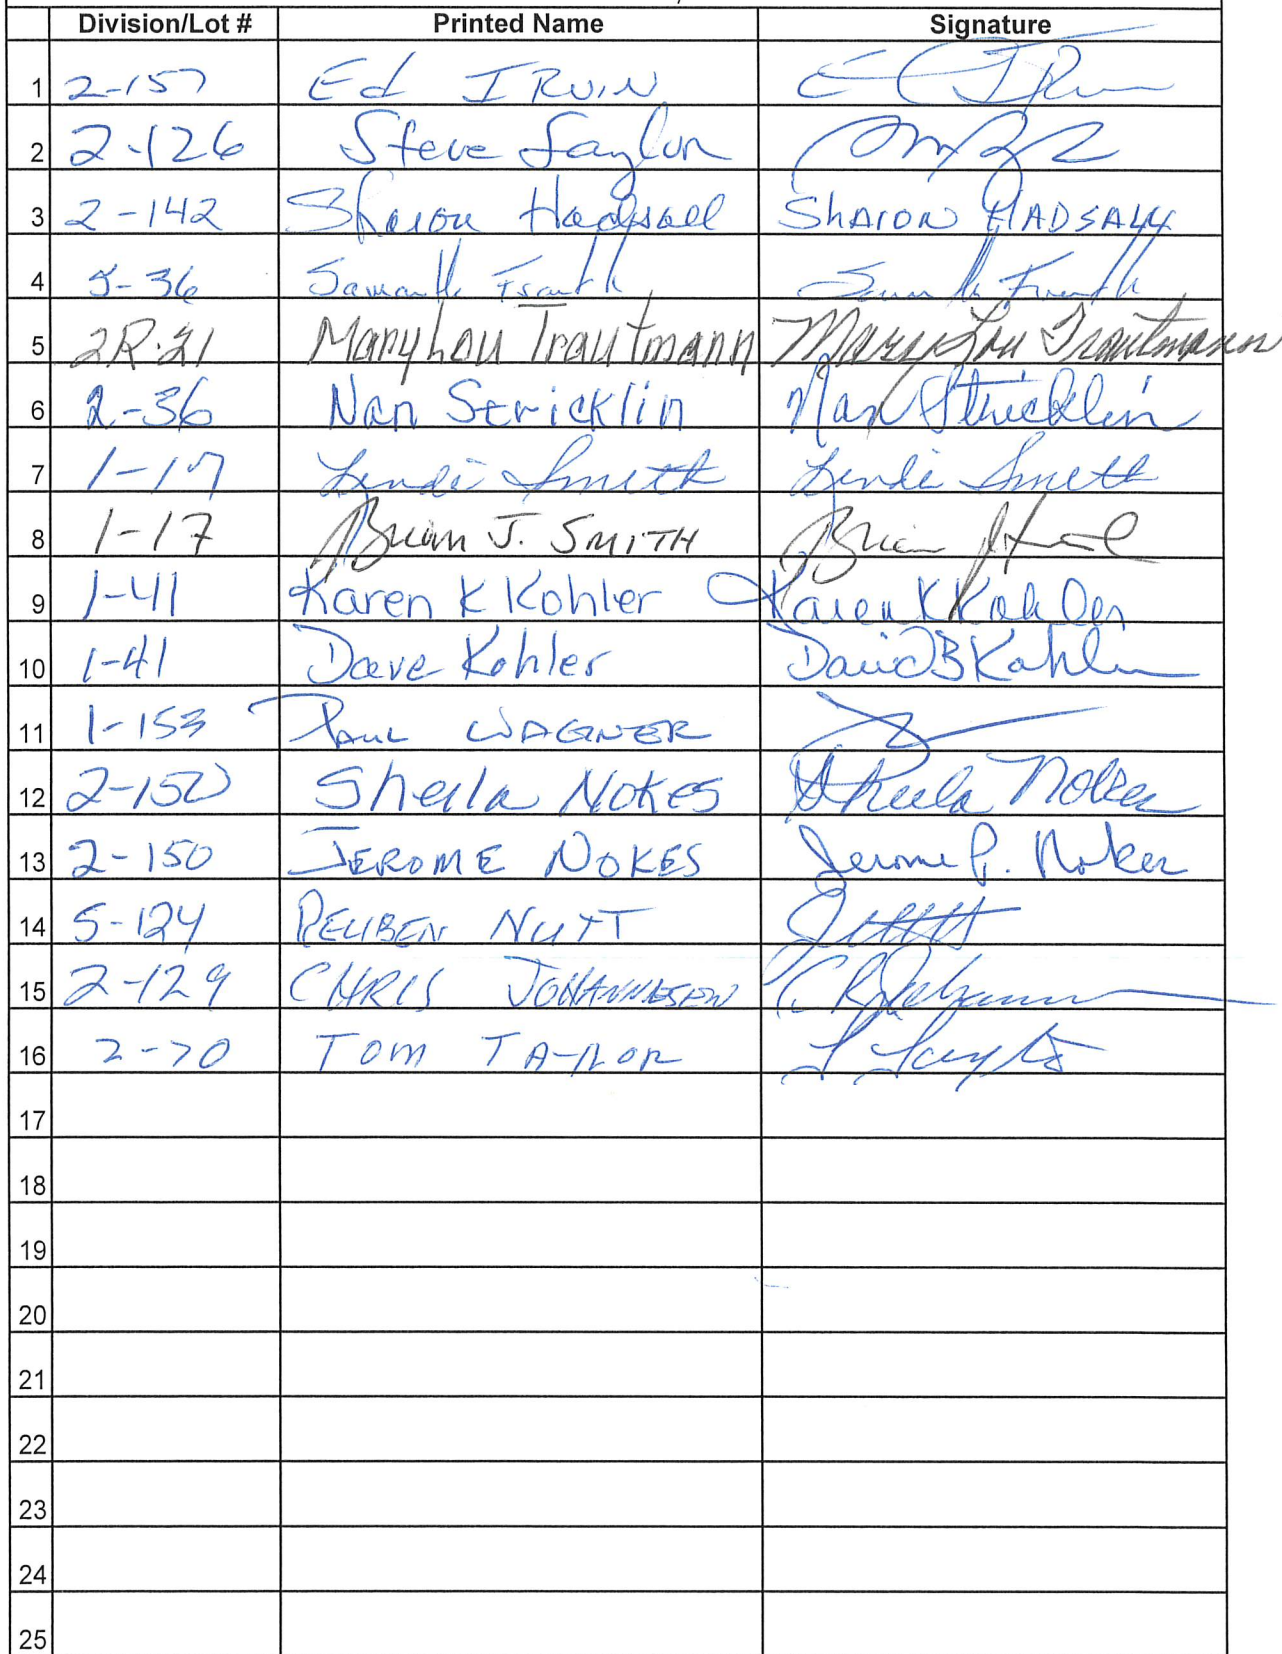 Division/Lot # Printed Name Signature
1 2-157 Ed IRVIN
2 2-126 Steve Saylor
3 2-142 Sharon Hadsall SHARON HADSALL
4 5-36 Samantha
5 2R-21 MaryLou Trautmann Mary Lou Trautmann
6 2-36 Nan Stricklin Nan Stricklin
7 1-17 Lindi Smith Lindi Smith
8 1-17 Brian J. SMITH Brian
9 1-41 Karen K Kohler Karen K Kohler
10 1-41 Dave Kohler David B Kohler
11 1-153 PAUL WAGNER
12 2-150 Sheila NOKES Sheila Nokes
13 2-150 JEROME NOKES Jerome P. Nokes
14 5-124 REUBEN NUTT
15 2-129 CHRIS JOHANNESEN
16 2-70 TOM TAYLOR
17
18
19
20
21
22
23
24
25